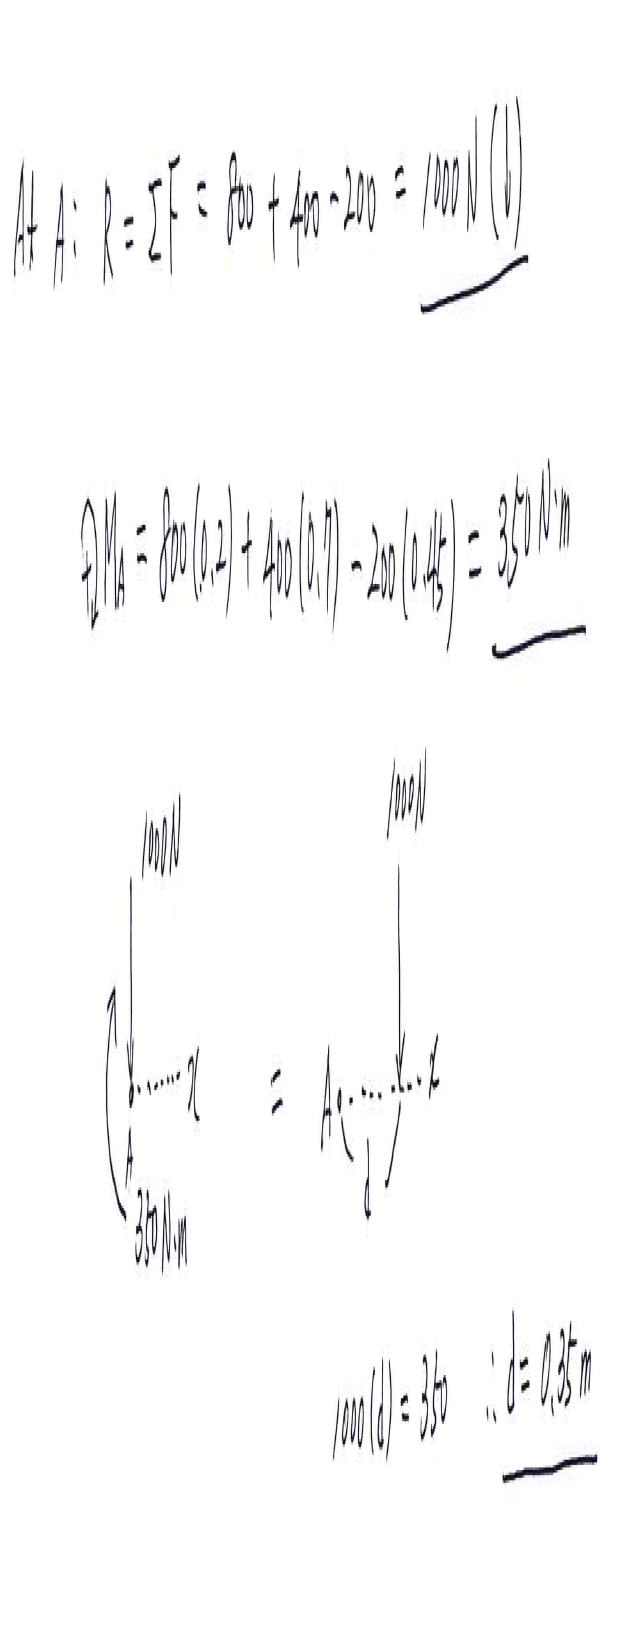 At A: R = ΣF = 800 + 400 - 200 = 1000N (↓)
↻M_A = 800(0.2) + 400(0.7) - 200(0.45) = 350 N·m
1000N 1000N
x = A x
A d
350 N·m
1000(d) = 350 ∴ d = 0.35m